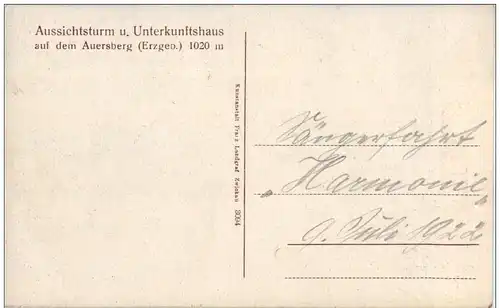 Aussichtsturm u. Unterkunftshaus
auf dem Auersberg (Erzgeb.) 1020 m
Kunstanstalt Franz Landgraf Zwickau 3094
Sängerfahrt
„Harmonie“
9. Juli 1922